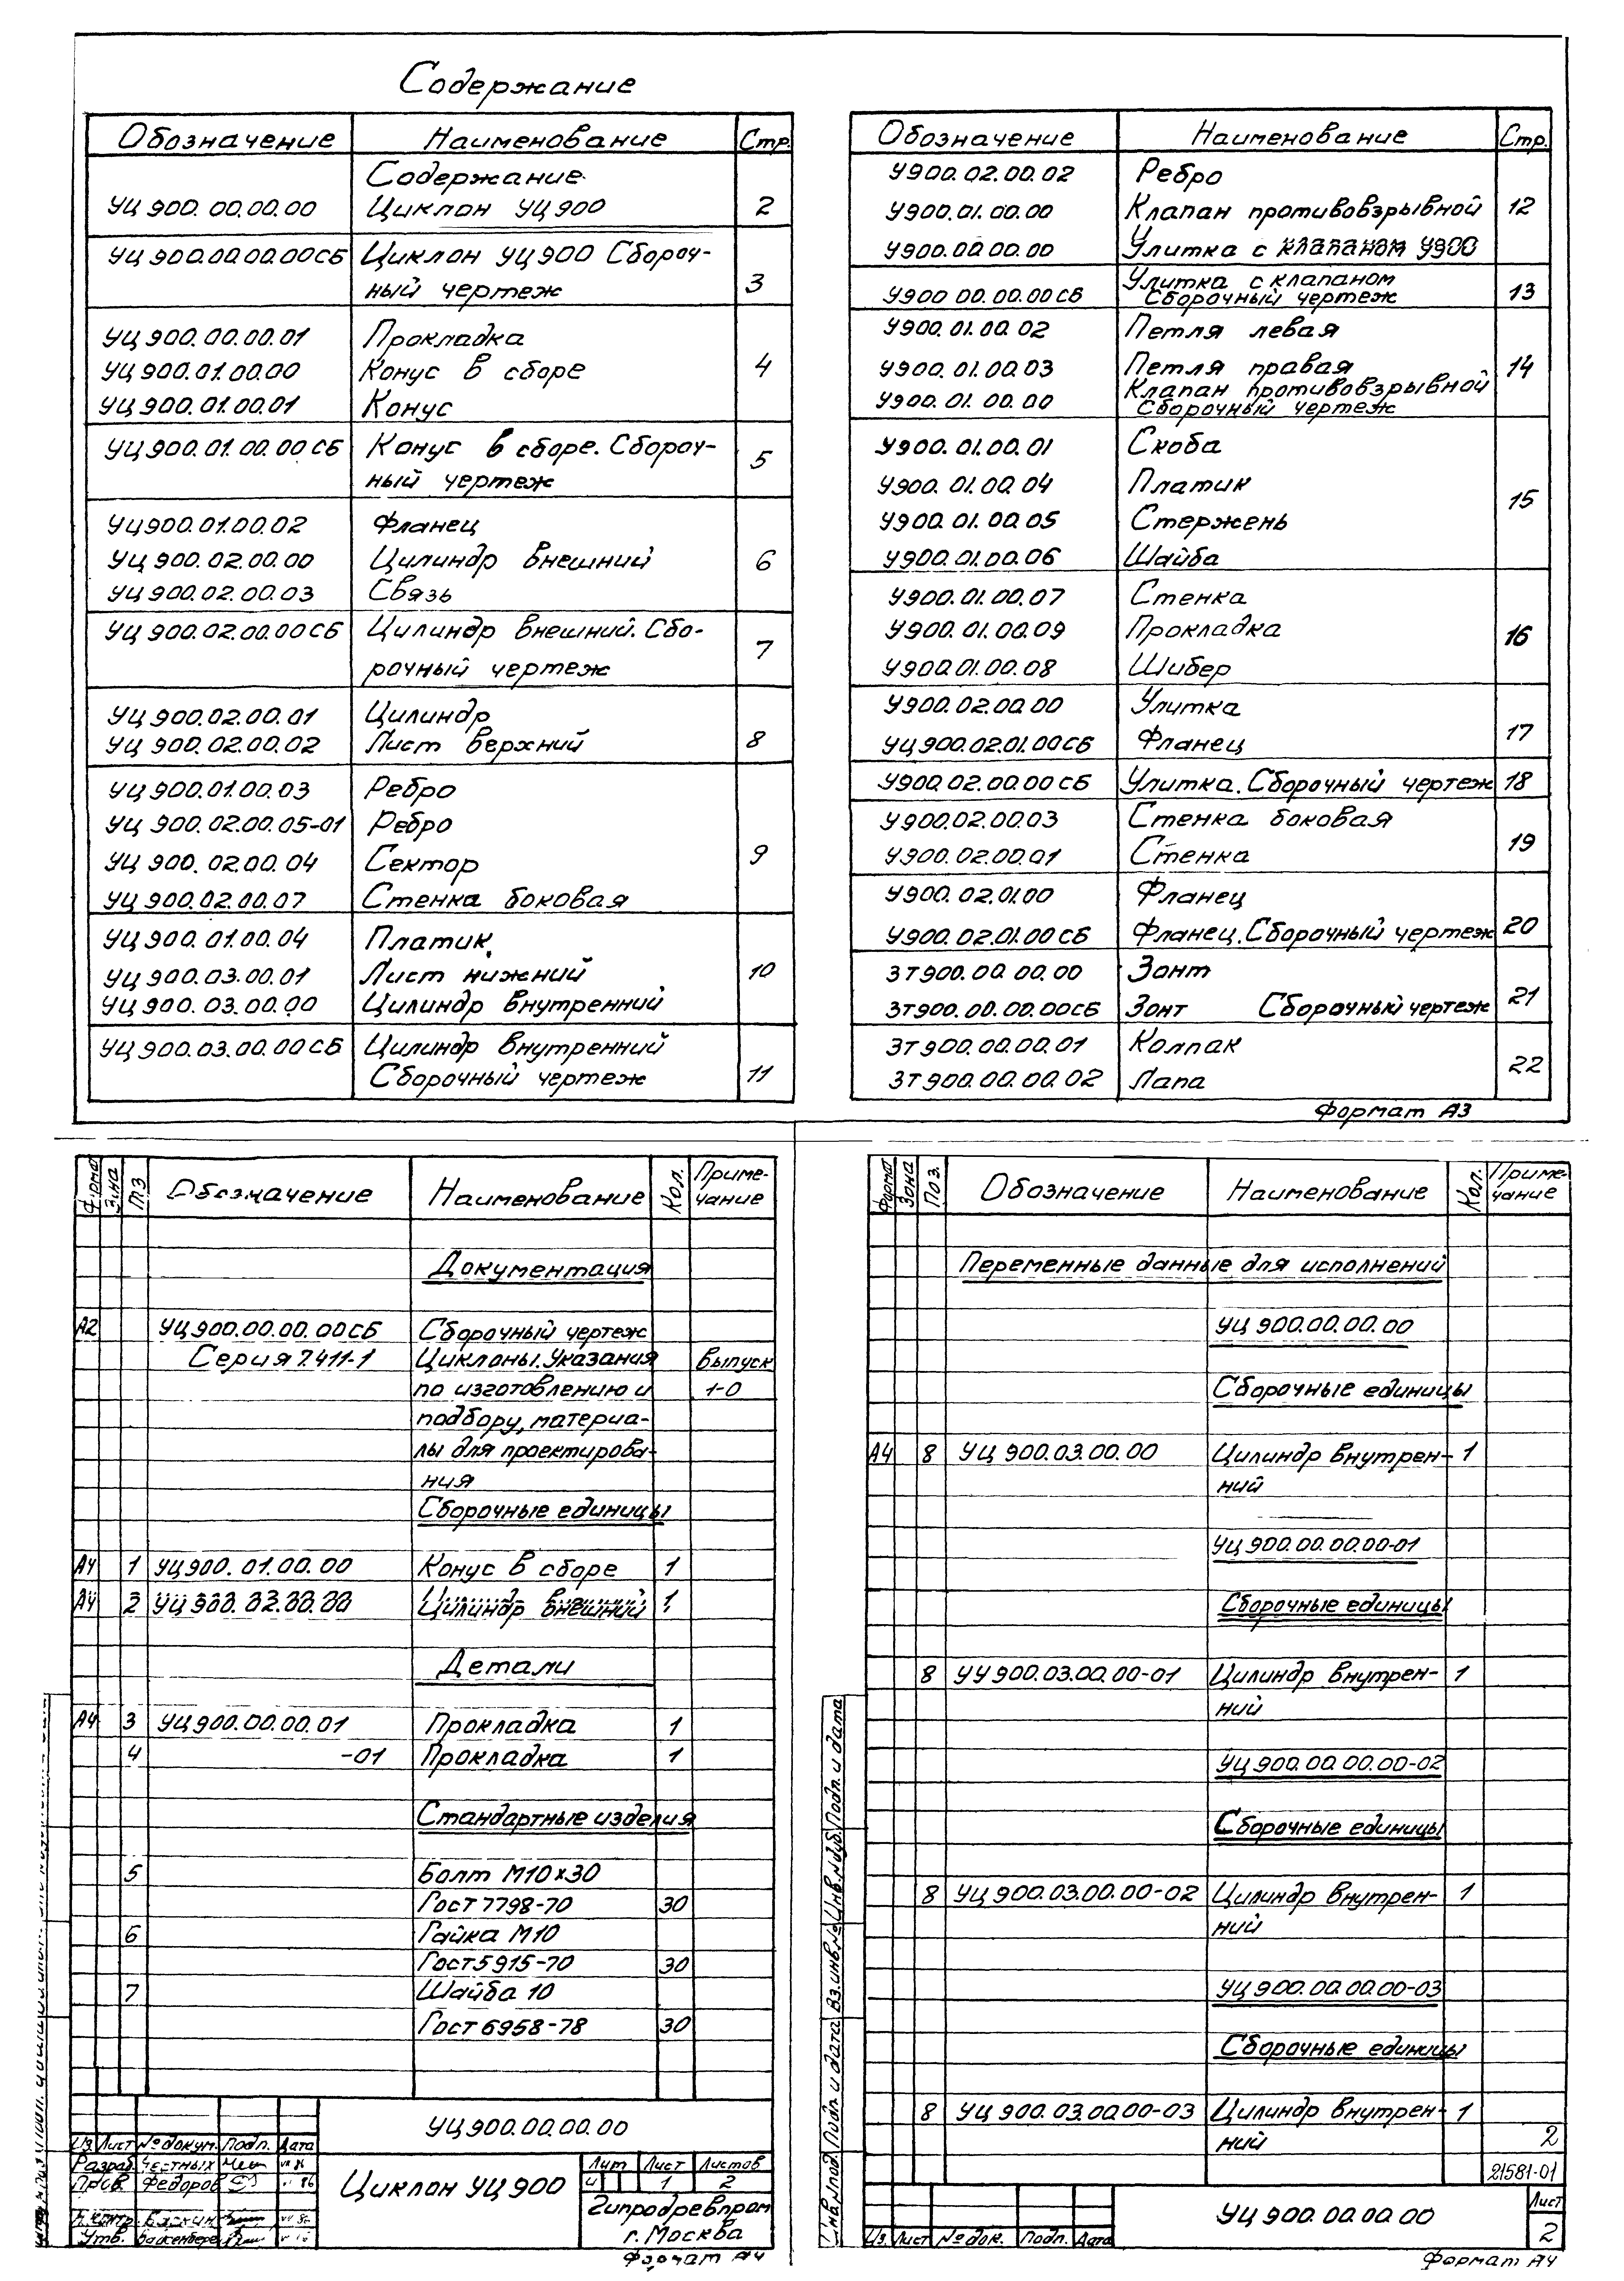 Содержание
Обозначение Наименование Стр.
Содержание
УЦ 900.00.00.00 Циклон УЦ 900 2
УЦ 900.00.00.00СБ Циклон УЦ 900 Сбороч-
ный чертеж 3
УЦ 900.00.00.01 Прокладка
УЦ 900.01.00.00 Конус в сборе 4
УЦ 900.01.00.01 Конус
УЦ 900.01.00.00СБ Конус в сборе. Сбороч-
ный чертеж 5
УЦ 900.01.00.02 Фланец
УЦ 900.02.00.00 Цилиндр внешний 6
УЦ 900.02.00.03 Связь
УЦ 900.02.00.00СБ Цилиндр внешний. Сбо-
рочный чертеж 7
УЦ 900.02.00.01 Цилиндр
УЦ 900.02.00.02 Лист верхний 8
УЦ 900.01.00.03 Ребро
УЦ 900.02.00.05-01 Ребро
УЦ 900.02.00.04 Сектор 9
УЦ 900.02.00.07 Стенка боковая
УЦ 900.01.00.04 Платик.
УЦ 900.03.00.01 Лист нижний 10
УЦ 900.03.00.00 Цилиндр внутренний
УЦ 900.03.00.00СБ Цилиндр внутренний
Сборочный чертеж 11
Обозначение Наименование Стр.
У900.02.00.02 Ребро
У900.01.00.00 Клапан противовзрывной 12
У900.00.00.00 Улитка с клапаном У900
Улитка с клапаном
У900 00.00.00СБ Сборочный чертеж 13
У900.01.00.02 Петля левая
У900.01.00.03 Петля правая 14
Клапан противовзрывной
У900.01.00.00 Сборочный чертеж
У900.01.00.01 Скоба
У900.01.00.04 Платик
У900.01.00.05 Стержень 15
У900.01.00.06 Шайба
У900.01.00.07 Стенка
У900.01.00.09 Прокладка 16
У900.01.00.08 Шибер
У900.02.00.00 Улитка
УЦ 900.02.01.00СБ Фланец 17
У900.02.00.00СБ Улитка. Сборочный чертеж 18
У900.02.00.03 Стенка боковая
У900.02.00.01 Стенка 19
У900.02.01.00 Фланец
У900.02.01.00СБ Фланец. Сборочный чертеж 20
ЗТ900.00.00.00 Зонт
ЗТ900.00.00.00СБ Зонт Сборочный чертеж 21
ЗТ900.00.00.01 Колпак
ЗТ900.00.00.02 Лапа 22
Формат А3
Формат Зона Обозначение Наименование Кол. Приме-
чание
Документация
А2 УЦ 900.00.00.00СБ Сборочный чертеж
Серия 7.411-1 Циклоны. Указания Выпуск
по изготовлению и 1-0
подбору, материа-
лы для проектирова-
ния
Сборочные единицы
А4 1 УЦ 900.01.00.00 Конус в сборе 1
А4 2 УЦ 900.02.00.00 Цилиндр внешний 1
Детали
А4 3 УЦ 900.00.00.01 Прокладка 1
4 -01 Прокладка 1
Стандартные изделия
5 Болт М10х30
Гост 7798-70 30
6 Гайка М10
Гост 5915-70 30
7 Шайба 10
Гост 6958-78 30
УЦ 900.00.00.00
Из. Лист № докум. Подп. Дата
Разраб. Честных
Пров. Федоров
Утв.
Циклон УЦ 900
Лит Лист Листов
и 1 2
Гипродревпром
г. Москва
Формат А4
Формат Зона Поз. Обозначение Наименование Кол. Приме-
чание
Переменные данные для исполнений
УЦ 900.00.00.00
Сборочные единицы
А4 8 УЦ 900.03.00.00 Цилиндр внутрен- 1
ний
УЦ 900.00.00.00-01
Сборочные единицы
8 УУ 900.03.00.00-01 Цилиндр внутрен- 1
ний
УЦ 900.00.00.00-02
Сборочные единицы
8 УЦ 900.03.00.00-02 Цилиндр внутрен- 1
ний
УЦ 900.00.00.00-03
Сборочные единицы
8 УЦ 900.03.00.00-03 Цилиндр внутрен- 1
ний
2
21581-01
Инв.№подл. Подп. и дата Вз.инв.№ Инв.№дуб. Подп. и дата
Из. Лист № док. Подп. Дата
УЦ 900.00.00.00
Лист
2
Формат А4